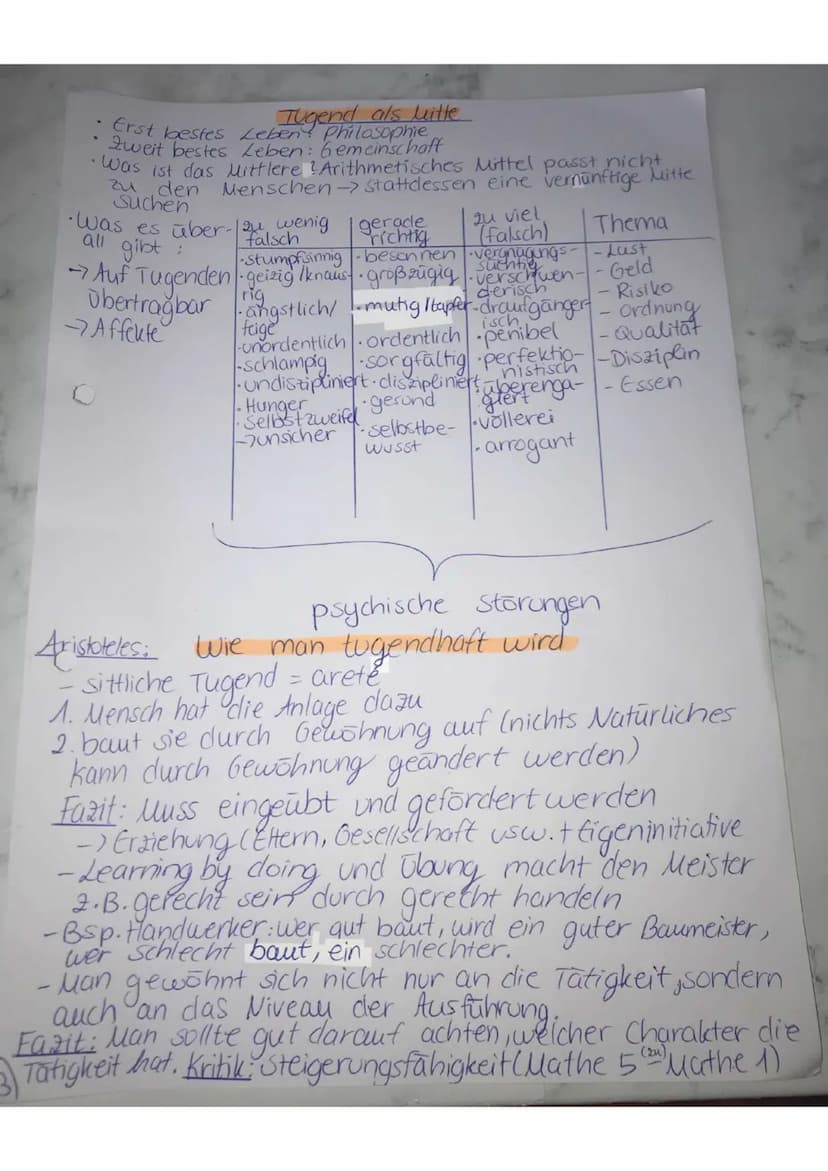 Tugend als Mitte
• Erst bestes Leben: Philosophie
• Zweit bestes Leben: Gemeinschaft
• Was ist das Mittlere? Arithmetisches Mittel passt nicht
zu den Menschen → stattdessen eine vernünftige Mitte
suchen
• Was es über-
all gibt:
→ Auf Tugenden
übertragbar
→ Affekte
zu wenig
falsch
• stumpfsinnig
• geizig /knaus-
rig
• ängstlich/
feige
• unordentlich
• schlampig
• undiszipliniert
• Hunger
• Selbstzweifel
→ unsicher
gerade
richtig
• besonnen
• großzügig
• mutig/tapfer
• ordentlich
• sorgfältig
• diszipliniert
• gesund
• selbstbe-
wusst
zu viel
(falsch)
• vergnügungs-
süchtig
• verschwen-
derisch
• draufgänger
isch
• penibel
• perfektio-
nistisch
• überenga-
giert
• völlerei
• arrogant
Thema
- Lust
- Geld
- Risiko
- Ordnung
- Qualität
- Disziplin
- Essen
psychische Störungen
Aristoteles: Wie man tugendhaft wird
- sittliche Tugend = areté
1. Mensch hat die Anlage dazu
2. baut sie durch Gewöhnung auf (nichts Natürliches
kann durch Gewöhnung geändert werden)
Fazit: Muss eingeübt und gefördert werden
→ Erziehung (Eltern, Gesellschaft usw. + Eigeninitiative
- Learning by doing und Übung macht den Meister
z.B. gerecht sein durch gerecht handeln
- Bsp. Handwerker: wer gut baut, wird ein guter Baumeister,
wer schlecht baut, ein schlechter.
- Man gewöhnt sich nicht nur an die Tätigkeit, sondern
auch an das Niveau der Ausführung.
Fazit: Man sollte gut darauf achten, welcher Charakter die
Tätigkeit hat. Kritik: Steigerungsfähigkeit (Mathe 5 (zu) – Mathe 1)